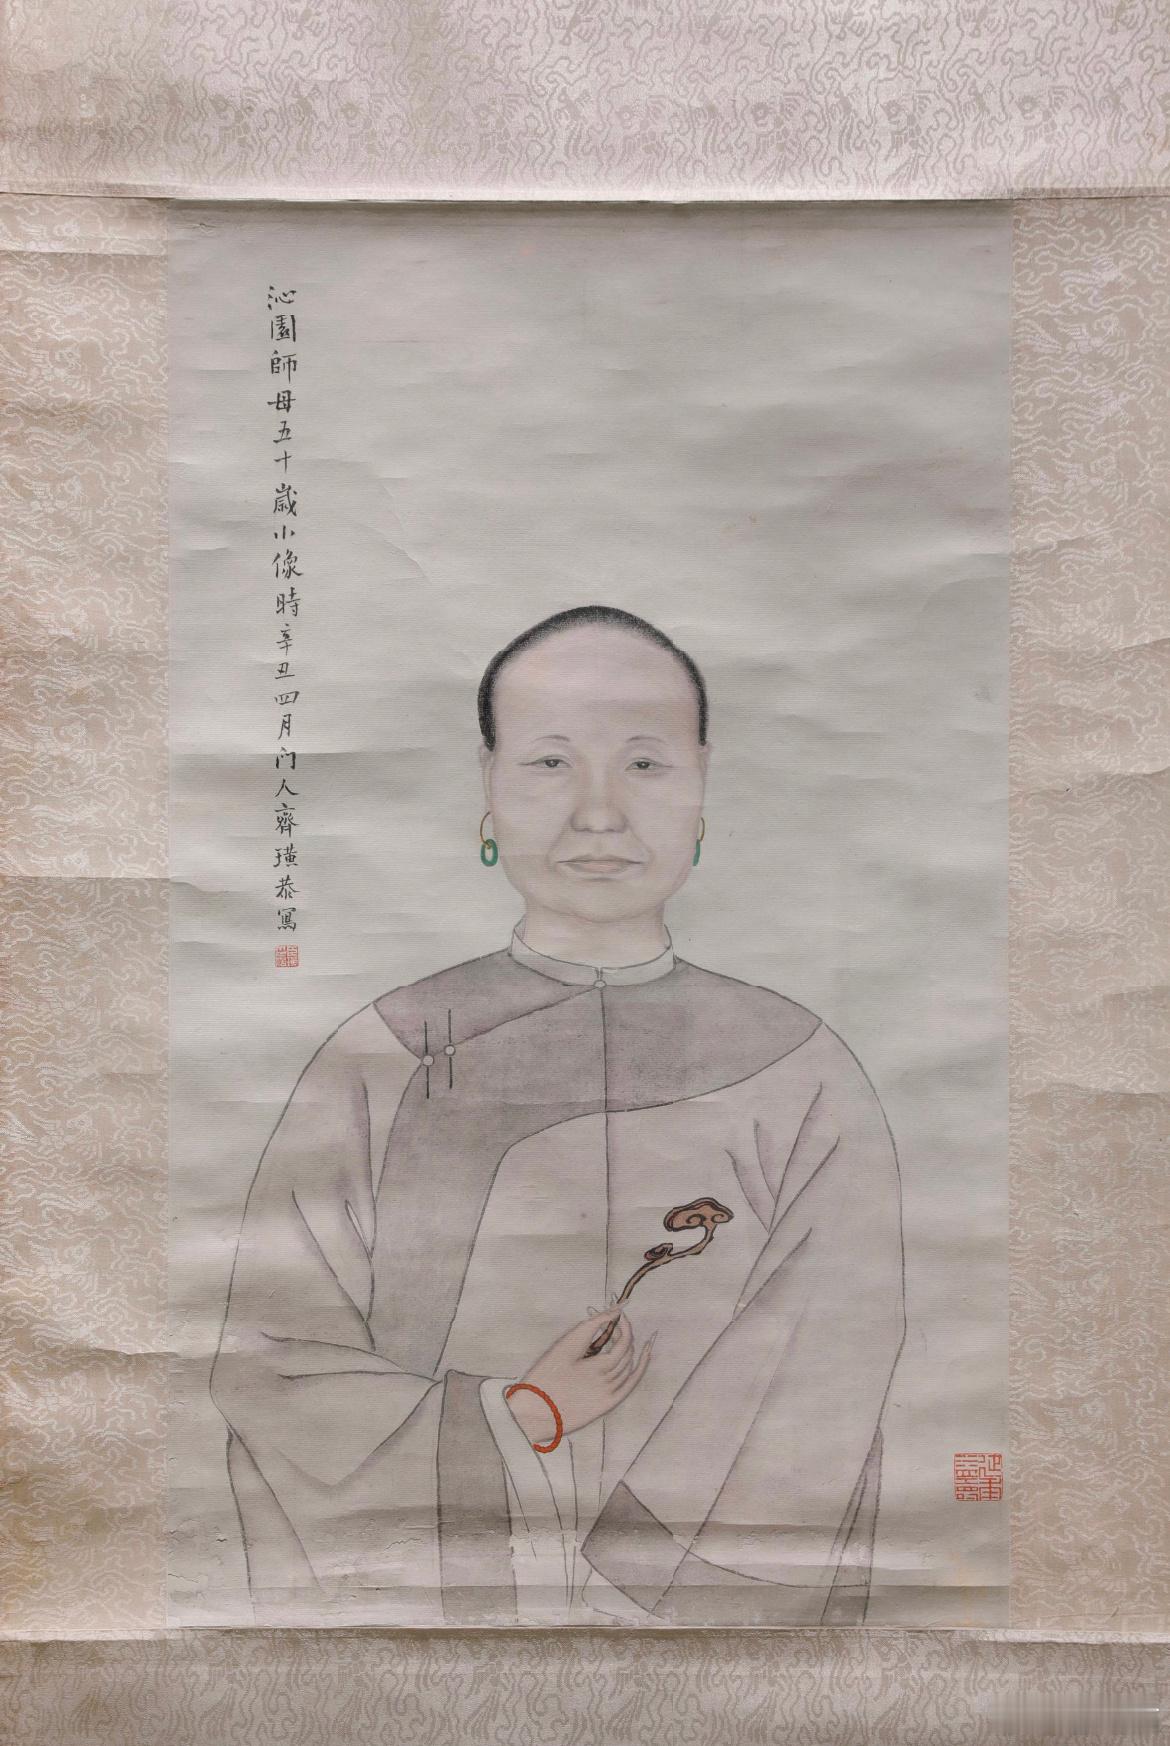 沁園師母五十歲小像時辛丑四月门人齊璜恭寫